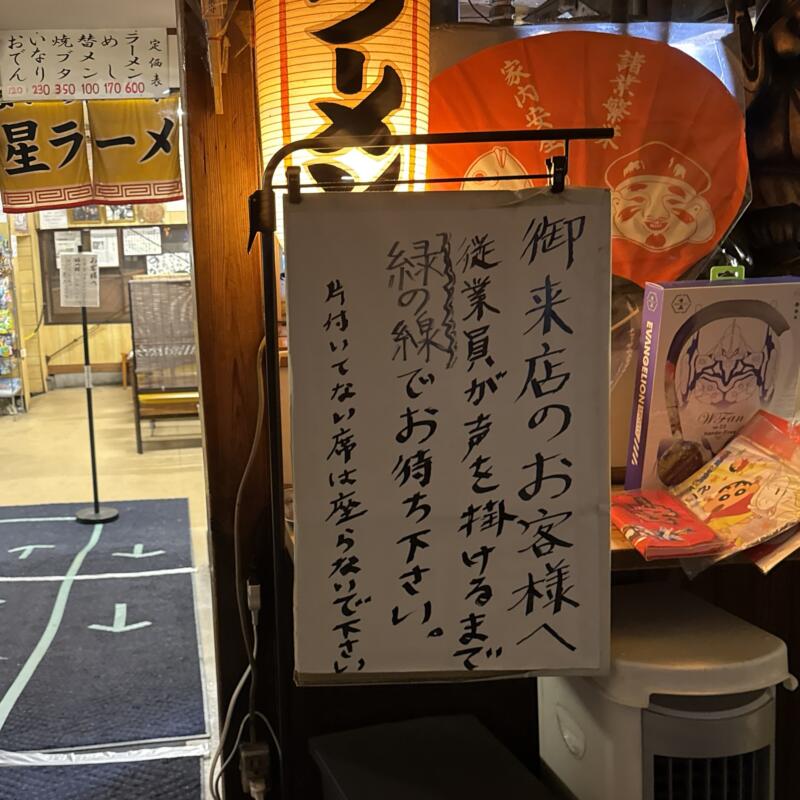 御来店のお客様へ
従業員が声を掛けるまで
緑の線でお待ち下さい。
片付いてない席は座らないで下さい
定価表
ラーメン 600
めし 170
替メン 100
焼ブタ 350
いなり 230
おでん 120
星ラーメ
ラーメン
諸業繁栄
家内安全
EVANGELION
W Fan
お客様へ